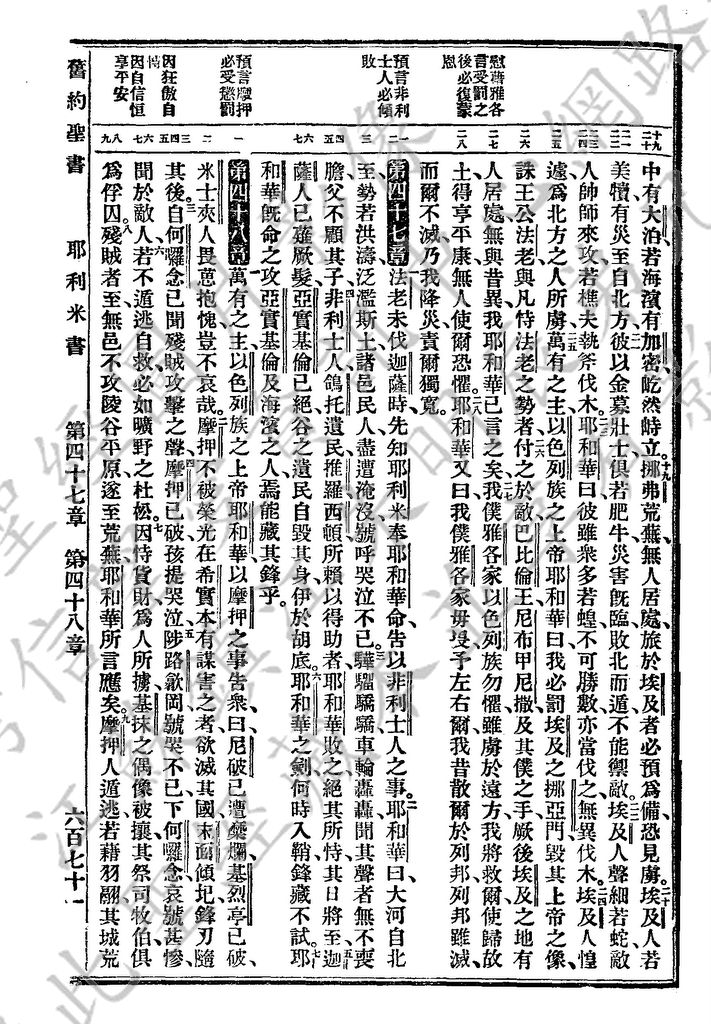 慰藉雅各
書受罰之
後必復蒙
恩
預言非利
士人必傾
敗
預言摩押
必受懲罰
因狂傲自
恃
因自信恒
享平安
中有大泊若海濱有加密屹然峙立十九挪弗荒蕪無人居處旅於埃及者必預爲備恐見虜二十埃及人若
美犢有災至自北方彼以金募壯士俱若肥牛災害旣臨敗北而遁不能禦敵埃及人聲細若蛇敵
人帥師來攻若樵夫執斧伐木耶和華曰彼雖衆多若蝗不可勝數亦當伐之無異伐木埃及人惶
遽爲北方之人所虜萬有之主以色列族之上帝耶和華曰我必罰埃及之挪亞門毀其上帝之像
誅王公法老與凡恃法老之勢者付之於敵巴比倫王尼布甲尼撒及其僕之手厥後埃及之地有
人居處無與昔異我耶和華已言之矣我僕雅各家以色列族勿懼雖虜於遠方我將救爾使歸故
土得享平康無人使爾恐懼耶和華又曰我僕雅各家毋畏予左右爾我昔散爾於列邦列邦雖滅
而爾不滅乃我降災責爾獨寬
第四十七章 法老未伐迦薩時先知耶利米奉耶和華命告以非利士人之事耶和華曰大河自北
至勢若洪濤泛濫斯土諸邑民人盡遭淹沒號呼哭泣不已驊騮驕驕車輪轟轟聞其聲者無不喪
膽父不顧其子非利士人鴿托遺民推羅西頓所賴以得助者耶和華敗之絕其所恃其日將至迦
薩人已薙厥髮亞實基倫已絕谷之遺民自毀其身伊於胡底耶和華之劍何時入鞘鋒藏不試耶
和華旣命之攻亞實基倫及海濱之人焉能藏其鋒乎
第四十八章 萬有之主以色列族之上帝耶和華以摩押之事告衆曰尼破已遭燬爛基烈亭已破
米士夾人畏葸抱愧豈不哀哉摩押不被榮光在希實本有謀害之者欲滅其國末面傾圮鋒刃隨
其後自何囉念已聞殘賊攻擊之聲摩押已破孩提哭泣陟路歙岡號哭不已下何囉念哀號甚慘
聞於敵人若不遁逃自救必如曠野之杜松因恃貨財爲人所擄基抹之偶像被攘其祭司牧伯俱
爲俘囚殘賊者至無邑不攻陵谷平原遂至荒蕪耶和華所言應矣摩押人遁逃若藉羽翮其城荒
舊約聖書 耶利米書 第四十七章 第四十八章 六百七十一